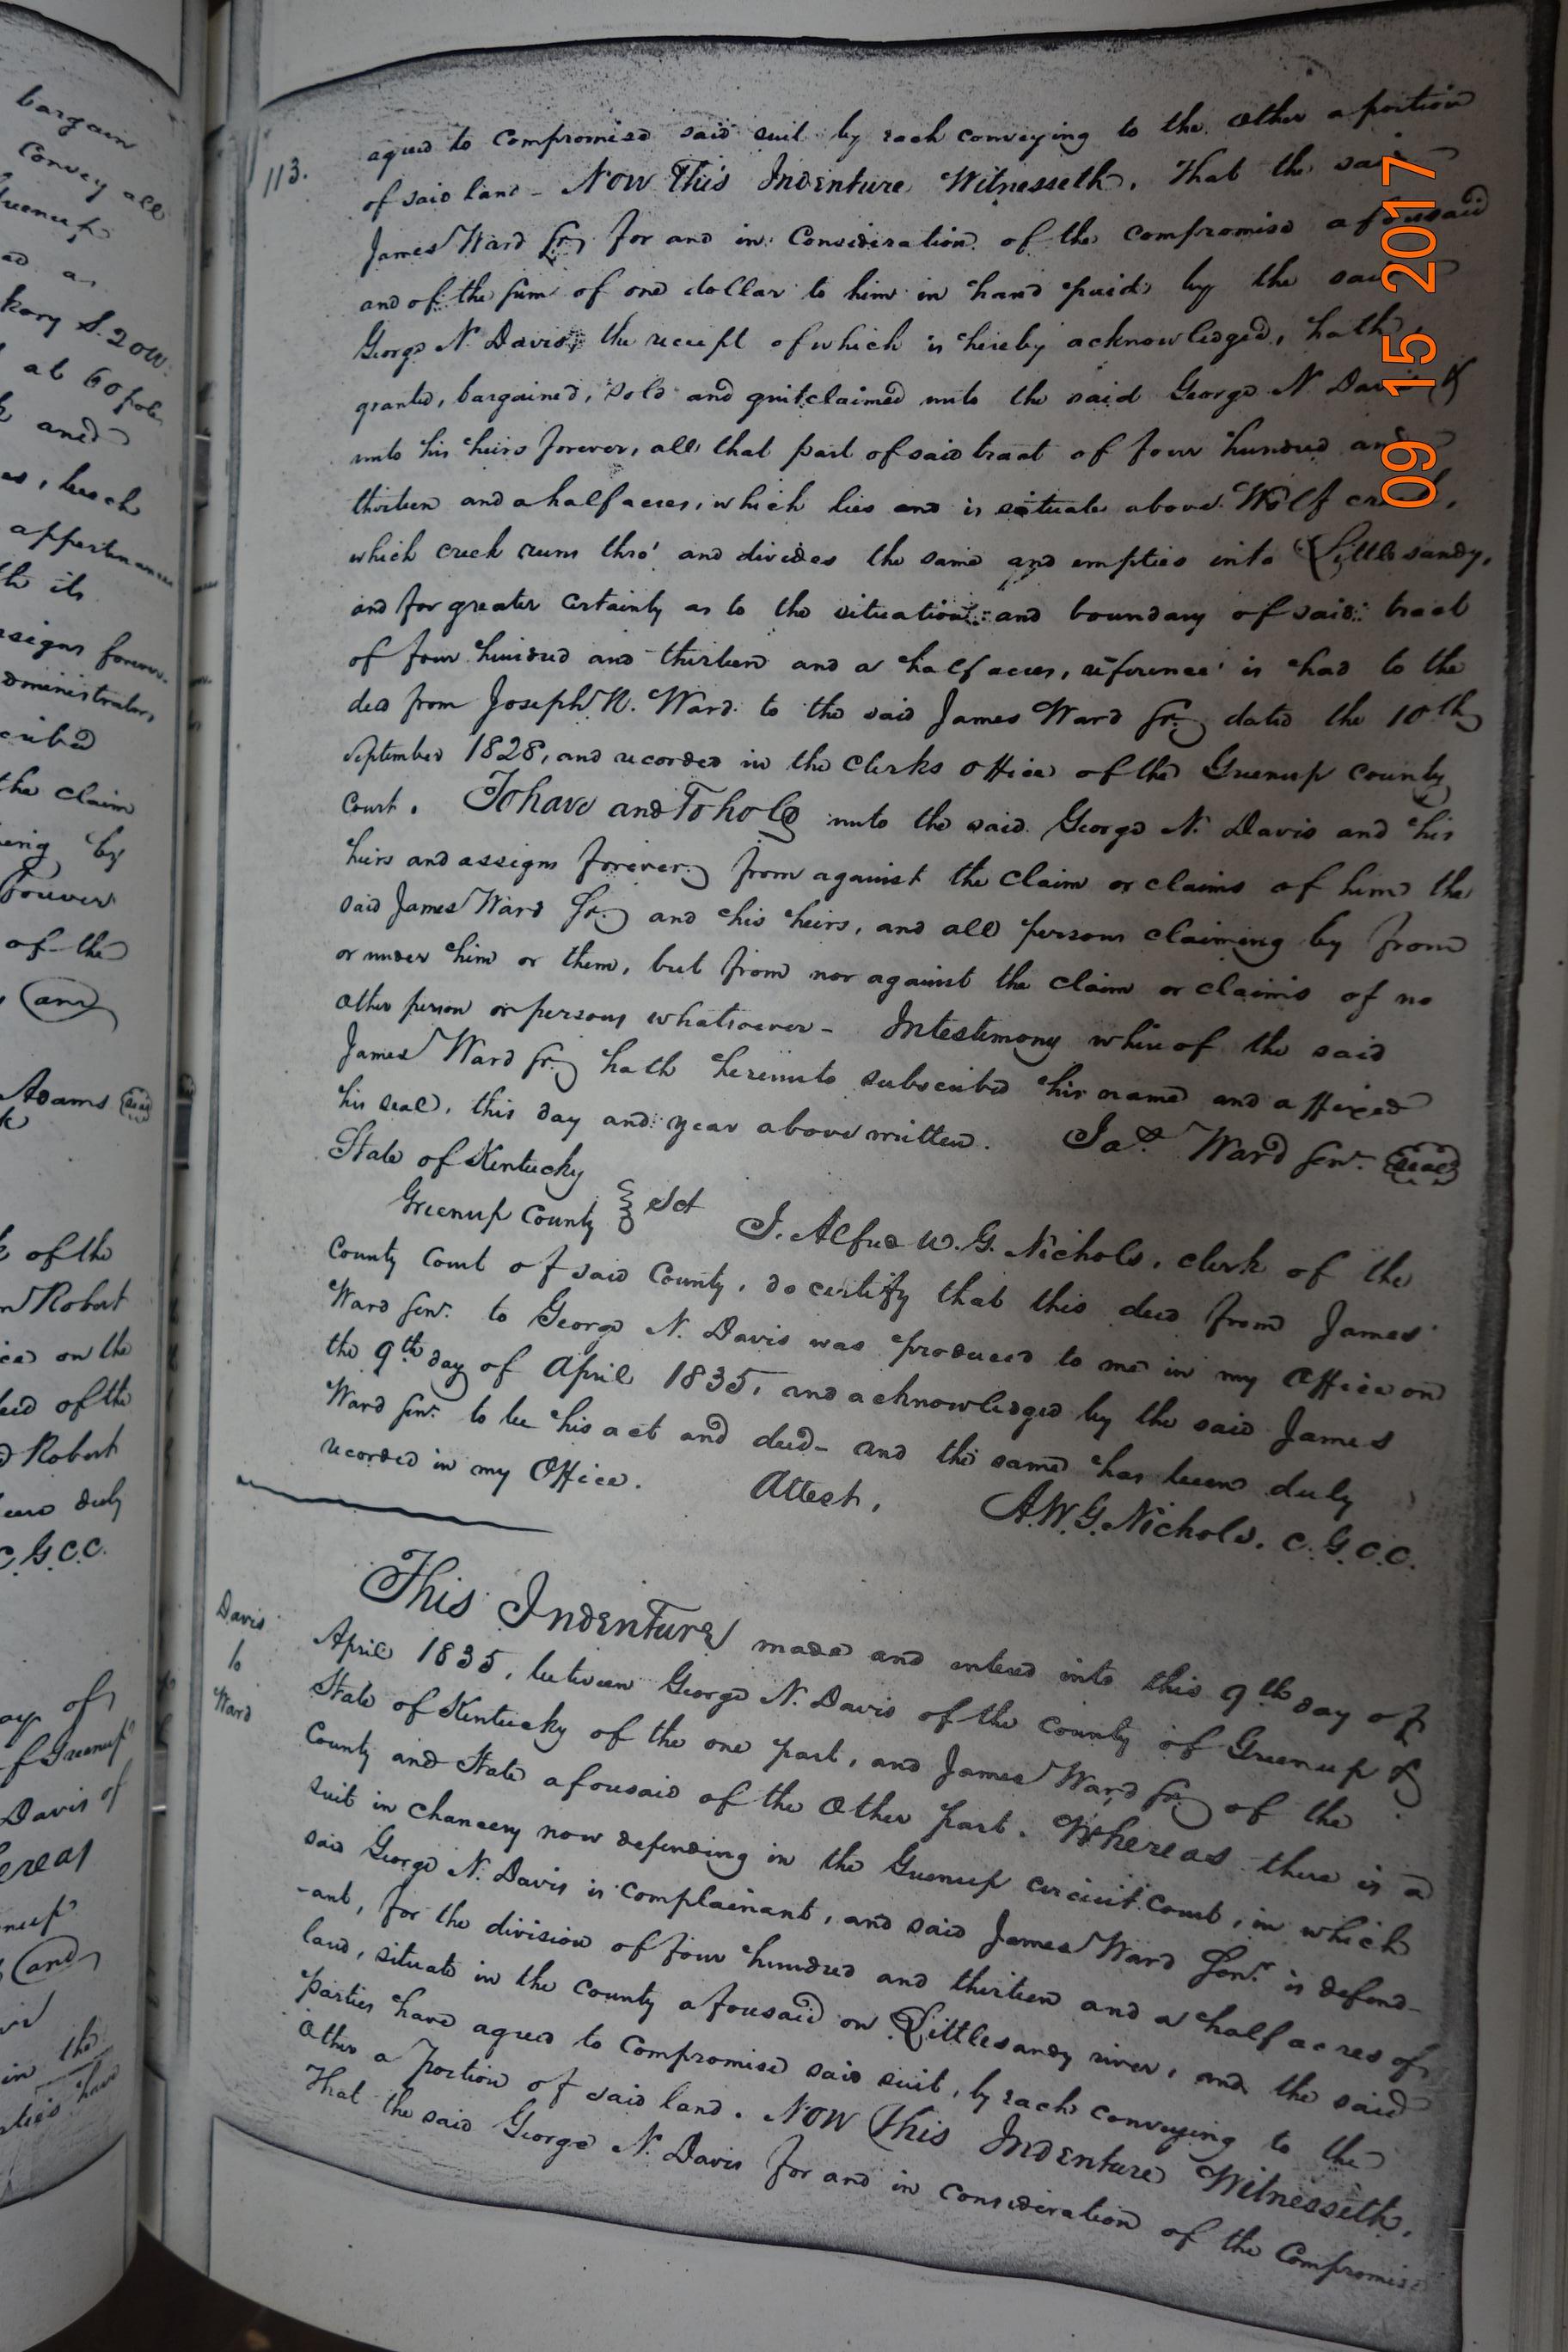 bargain
Convey all
Greenup
ad as
kory S. 20 W.
at 60 poles
and
as, beech
appertenances
th its
ssigns forever.
dministrators
cribed
the claim
ing by
forever
of the
and
Adams Seal
k of the
Robert
on the
deed of the
Robert
been duly
C.G.C.C.
ay of
f Greenup
Davis of
ereas
and
in the
parties have
113.
agreed to compromise said suit by each conveying to the other a portion
of said land - Now This Indenture Witnesseth, That the said
James Ward Sr. for and in Consideration of the compromise aforesaid
and of the sum of one dollar to him in hand paid by the said
George N. Davis, the receipt of which is hereby acknowledged, hath
granted, bargained, sold and quitclaimed unto the said George N Davis &
unto his heirs forever, all that part of said tract of four hundred and
thirteen and a half acres, which lies and is situate above Wolf creek,
which creek runs thro' and divides the same and empties into Little sandy,
and for greater certainty as to the situation and boundary of said tract
of four hundred and thirteen and a half acres, reference is had to the
deed from Joseph N. Ward to the said James Ward Sr. dated the 10th
September 1828, and recorded in the clerks office of the Greenup county
Court. To have and To hold unto the said George N. Davis and his
heirs and assigns forever from against the claim or claims of him the
said James Ward Sr. and his heirs, and all persons claiming by from
or under him or them, but from nor against the claim or claims of no
other person or persons whatsoever - In testimony whereof the said
James Ward Sr. hath hereunto subscribed his name and affixed
his seal, this day and year above written. Jas. Ward Senr. Seal
State of Kentucky
Greenup County } Sct
I. Alfred W. G. Nichols, clerk of the
County Court of said County, do certify that this deed from James
Ward Senr. to George N. Davis was produced to me in my Office on
the 9th day of April 1835, and acknowledged by the said James
Ward Senr. to be his act and deed - and the same has been duly
recorded in my Office. Attest, A.W.G. Nichols. C.G.C.C.
Davis
to
Ward
This Indenture made and entered into this 9th day of
April 1835, between George N. Davis of the county of Greenup &
State of Kentucky of the one part, and James Ward Sr. of the
County and State aforesaid of the other part. Whereas there is a
suit in chancery now depending in the Greenup circuit court, in which
said George N. Davis is complainant, and said James Ward Senr. is defend-
-ant, for the division of four hundred and thirteen and a half acres of
land, situate in the county aforesaid on Little sandy river, and the said
parties have agreed to compromise said suit, by each conveying to the
other a portion of said land. Now This Indenture Witnesseth,
That the said George N. Davis for and in consideration of the Compromise
09 15 2017